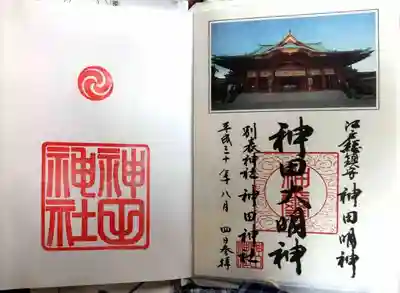 江戸総鎮守 神田明神
神田大明神
別表神社 神田神社
平成三十年八月四日奉拝
神田
神社